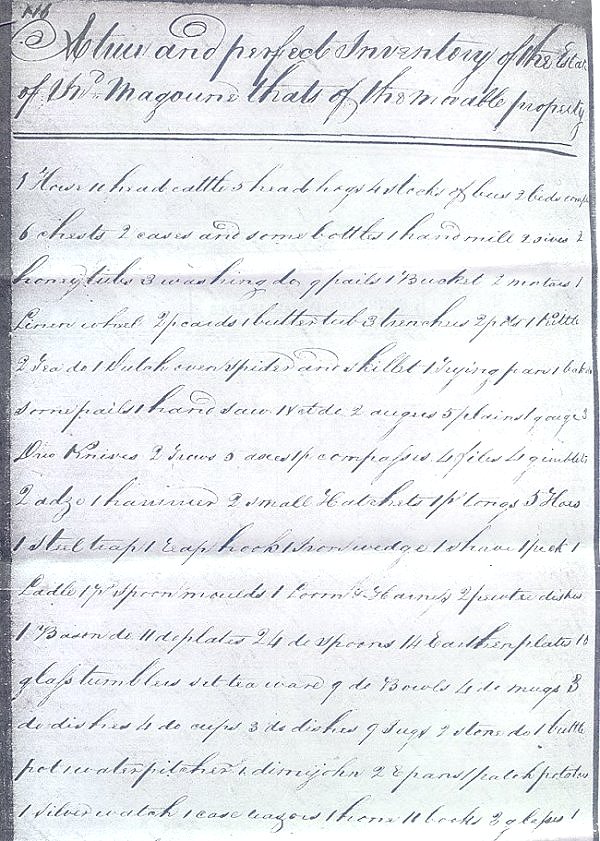 A true and perfect Inventory of the Estate
of Thos. Magoune thats of the movable property
1 Horse 11 head cattle 5 head hogs 4 stocks of bees 2 beds
6 chests 2 cases and some bottles 1 hand mill 2 sives 2
honey tubs 3 washing do 9 pails 1 Bucket 2 1
Linen wheel 2 p cards 1 butter tub 3 trenchers 2 pots 1 Kittle
2 Tea do 1 Dutch oven spider and skillet 1 frying pan 1
some pails 1 hand saw 1 do 2 augres 5 plains 1 gouge 3
Knives 2 3 axes 1 p compasses 4 files 4 gimblets
2 adze 1 hammer 2 small Hatchets 1 pr tongs 5 Hoes
1 steel trap 1 Reap hook 1 Iron wedge 1 shave 1 peck 1
Ladle 1 pr spoon moulds 1 Loom & 2 pewter dishes
1 Bason do 11 do plates 24 do spoons 14 Earthen plates 10
glass tumblers set tea ware 9 do Bowls 4 do mugs 3
do dishes 4 do cups 3 do dishes 9 Jugs 2 stone do 1 buttle
pot 1 water pitcher 1 dimijohn 2 pans 1 patch potatoes
1 silver watch 1 case razors 1 hone 11 books 2 glasses 1